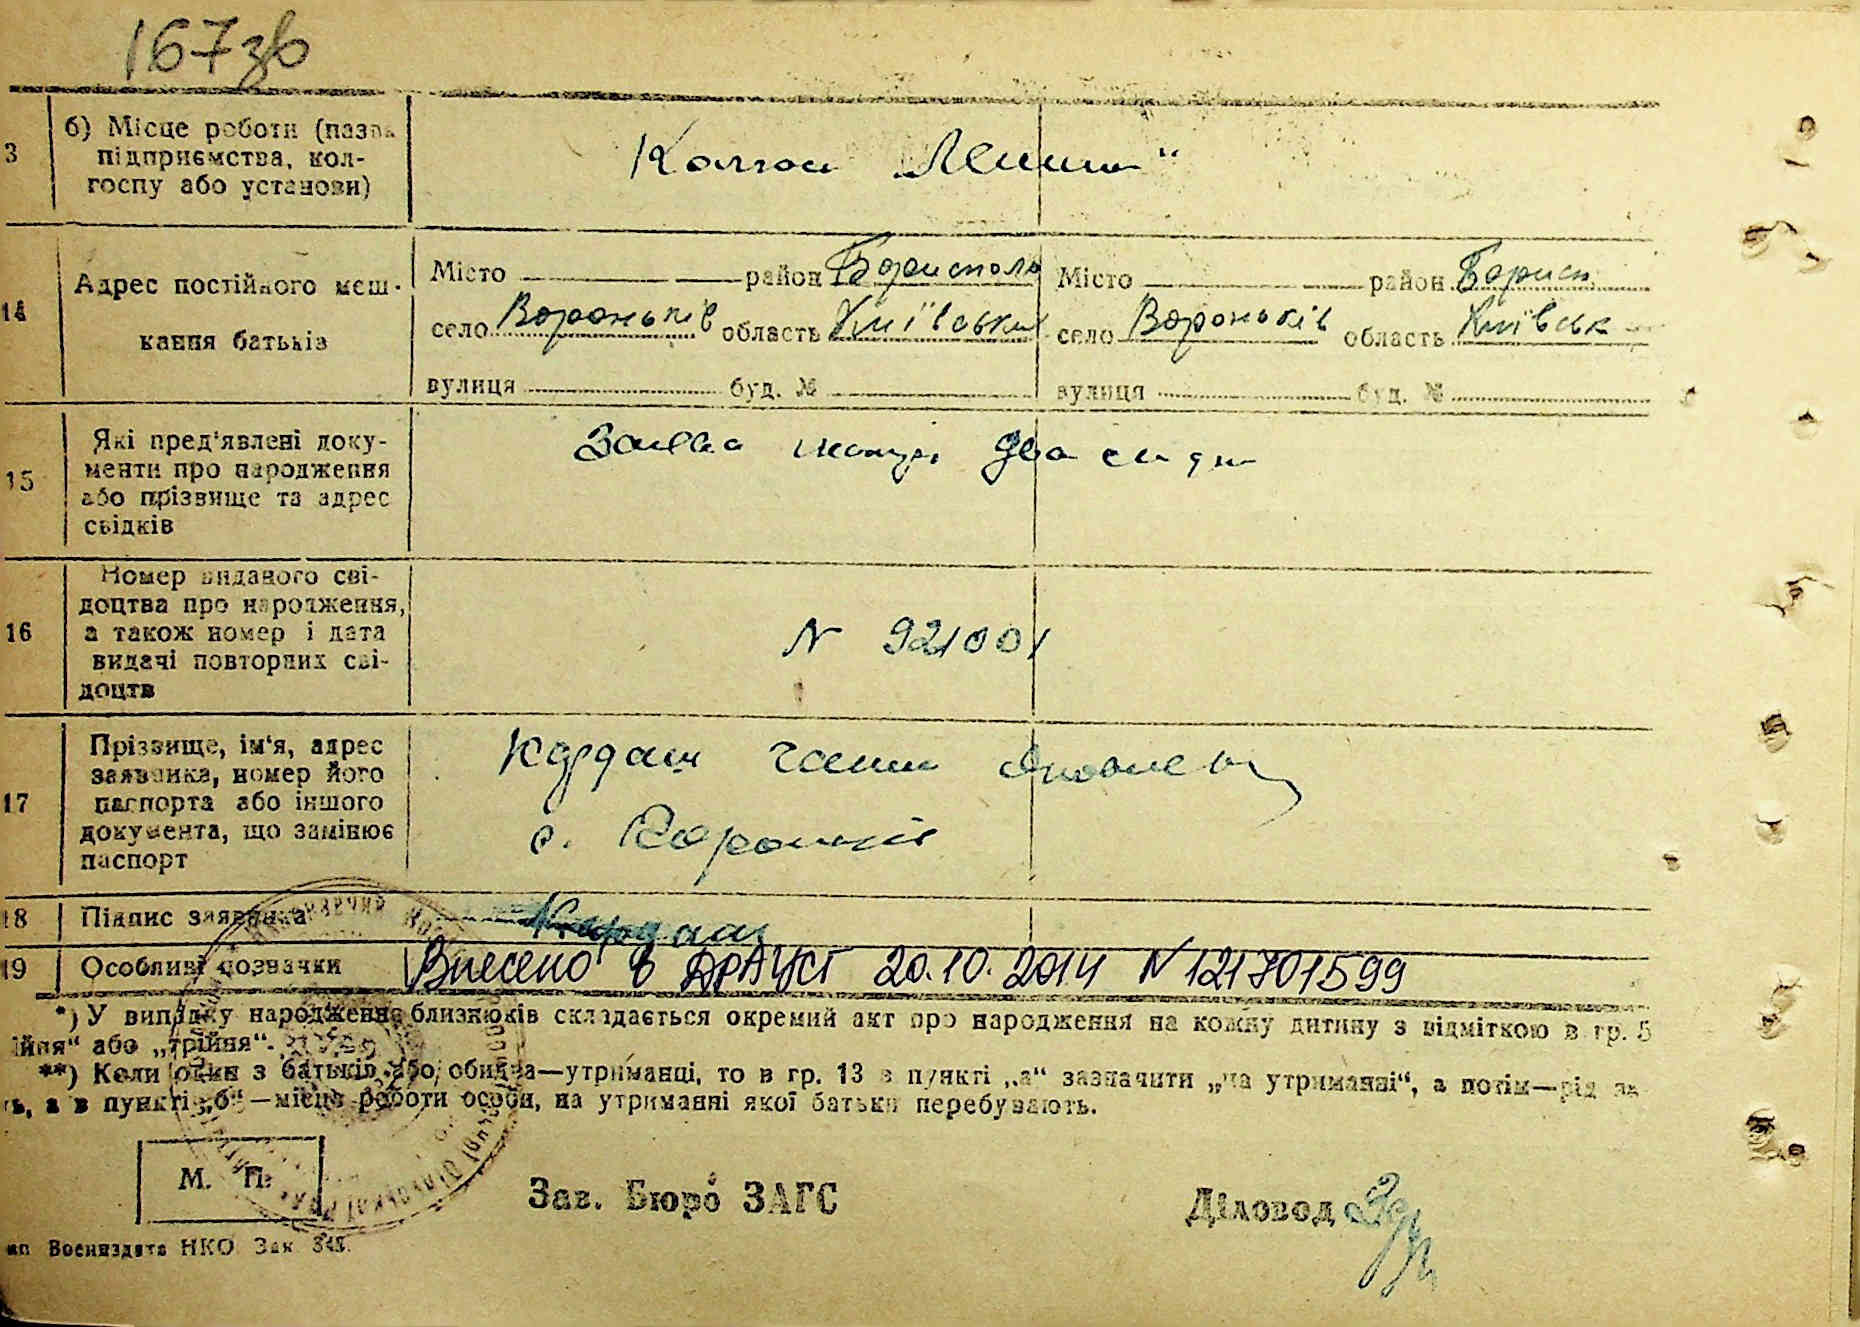 167зв
3
б) Місце роботи (назва
підприємства, кол-
госпу або установи)
Колгосп „Ленина“
14
Адрес постійного меш-
кання батьків
Місто район Бориспол
село Вороньків область Київська
вулиця буд. №
Місто район Борисп
село Вороньків область Київськ
вулиця буд. №
15
Які пред'явлені доку-
менти про народження
або прізвище та адрес
свідків
Заява два
16
Номер виданого сві-
доцтва про народження,
а також номер і дата
видачі повторних сві-
доцтв
N 921001
17
Прізвище, ім'я, адрес
заявника, номер його
паспорта або іншого
документа, що замінює
паспорт
Кардаш
с. Вороньків
18
Підпис заявника
Кардаш
19
Особливі позначки
Внесено в ДРАЦСГ 20.10.2014 N 121701599
*) У випадку народження близнюків складається окремий акт про народження на кожну дитину з відміткою в гр. 5
ійня“ або „трійня“.
**) Коли один з батьків або обидва—утриманці, то в гр. 13 в пункті „а“ зазначити „на утриманні“, а потім—рід за-
ть, а в пункті „б“—місце роботи особи, на утриманні якої батьки перебувають.
М. П.
Зав. Бюро ЗАГС
Діловод
Воениздата НКО Зак 348.